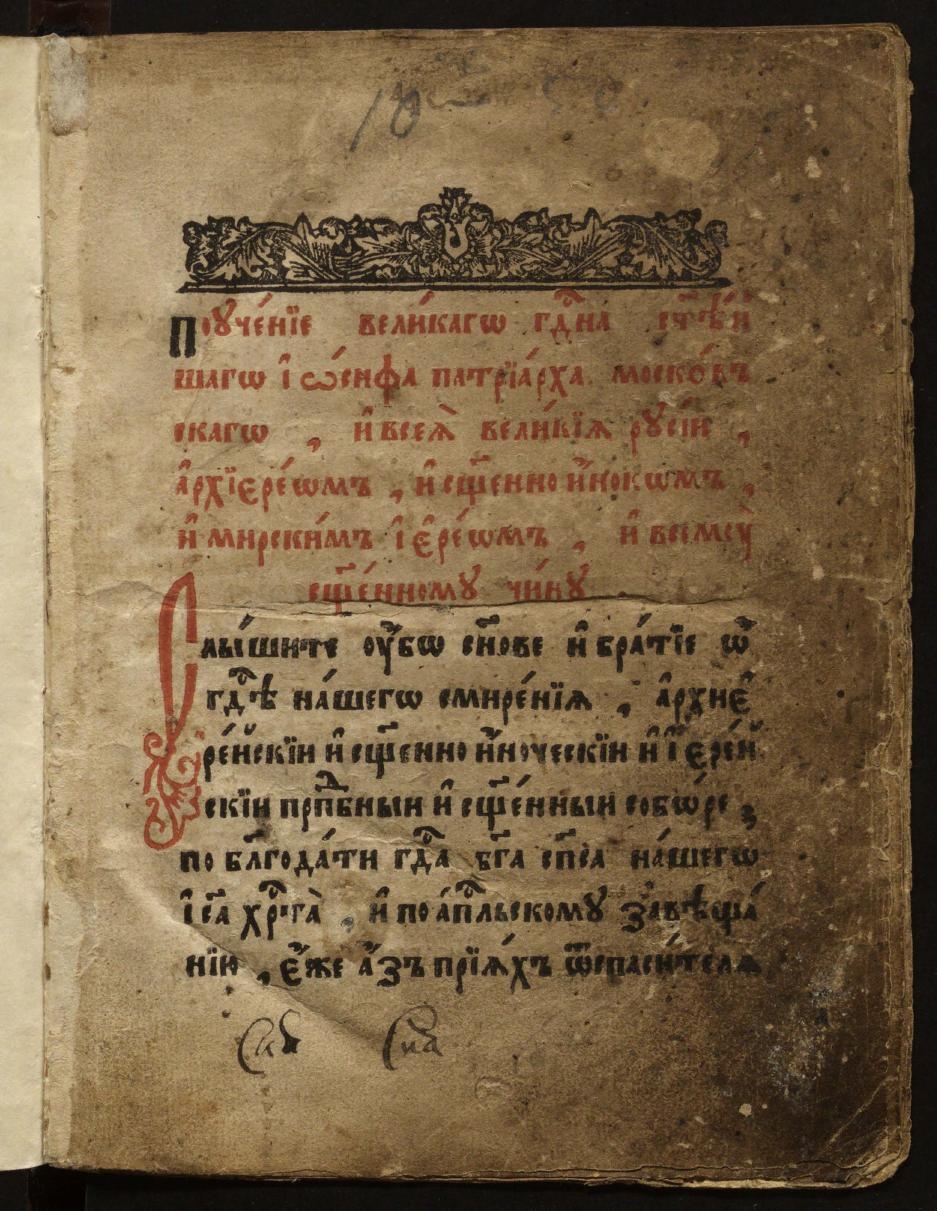 Поуче́нїе вели́кагѡ гдⷭ҇на ст҃ѣ́й
шагѡ і҆ ѡ҆́сифа патрїа́рха моско́въ
скагѡ , и҆ всеѧ̀ вели́кїѧ руси́и ,
а҆рхїєре́ѡмъ , и҆ сщ҃енно и҆́нокѡмъ ,
и҆ мирски́мъ і҆ є҆ре́ѡмъ , и҆ всемꙋ̀
сщ҃е́нному чи́ну
Слы́шите оу҆́бѡ сн҃ове и҆ бра́тїе ѡ҆
гдⷭ҇ѣ на́шегѡ смире́нїѧ , а҆рхиє҆
ре́йскїи и҆ сщ҃енно и҆́ноческїи и҆ і҆є҆ре́й
скїи прпⷣбныи и҆ сщ҃е́нныи собѡ́ре ;
по бл҃года́ти гдⷭ҇а бг҃а сп҃са на́шегѡ
і҆с҃а хрⷭ҇та̀ , и҆ по а҆пⷭ҇льскому завѣща́
нїю , є҆́же а҆́зъ прїѧ́хъ ѿ спаси́телѧ
Сиа